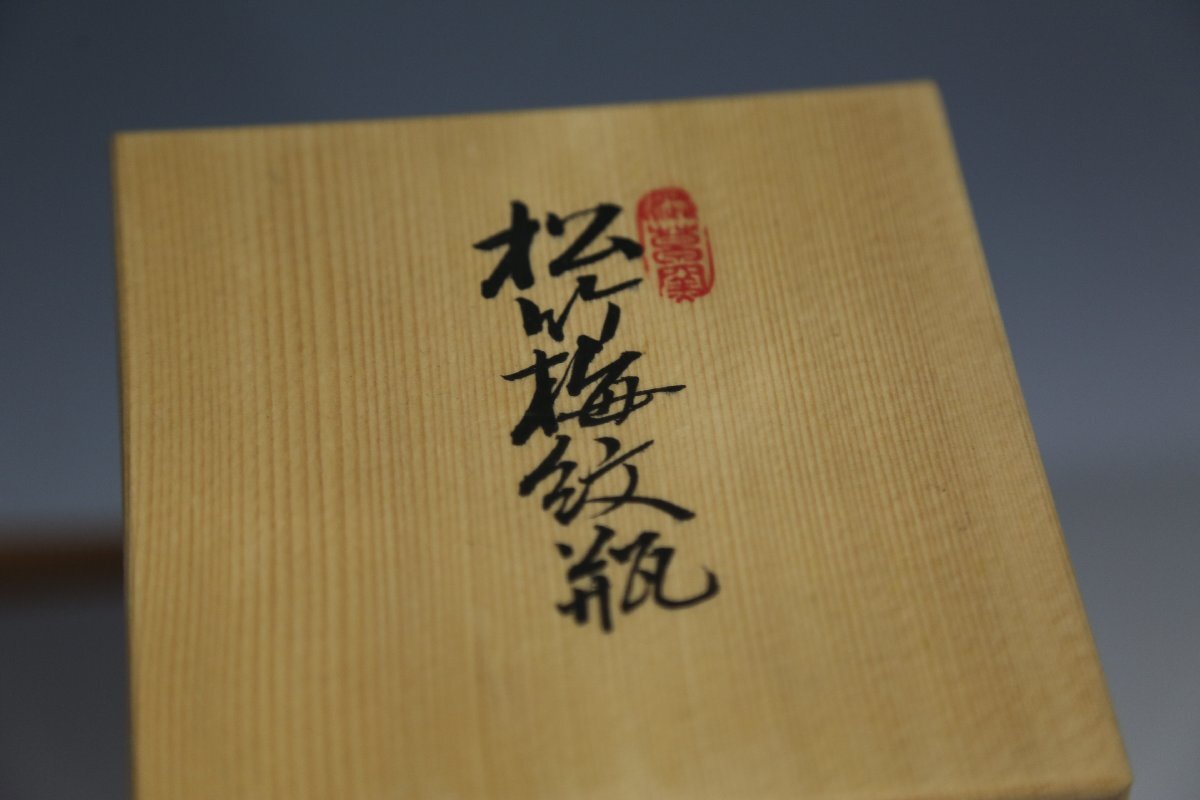 松竹梅紋瓶